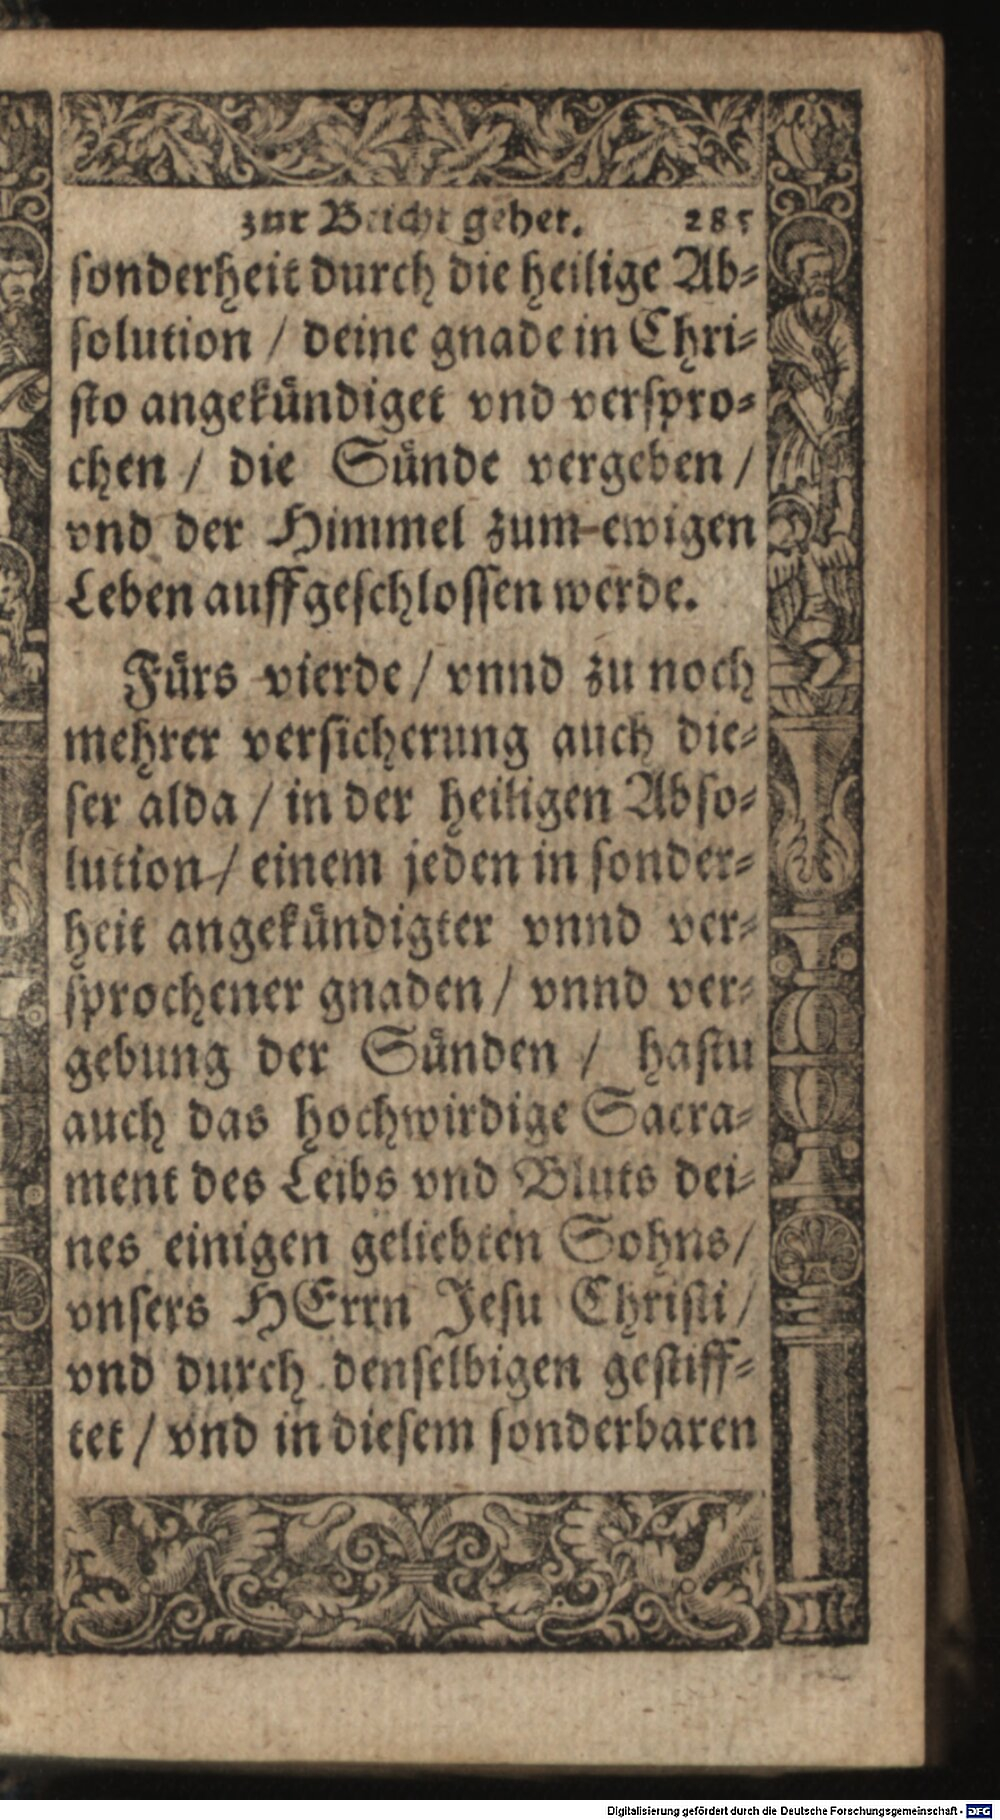 zur Beicht gehet. 285
sonderheit durch die heilige Ab-
solution / deine gnade in Chri-
sto angekündiget vnd verspro-
chen / die Sünde vergeben /
vnd der Himmel zum ewigen
Leben auffgeschlossen werde.
Fürs vierde / vnnd zu noch
mehrer versicherung auch die-
ser alda / in der heiligen Abso-
lution / einem jeden in sonder-
heit angekündigter vnnd ver-
sprochener gnaden / vnnd ver-
gebung der Sünden / hastu
auch das hochwirdige Sacra-
ment des Leibs vnd Bluts dei-
nes einigen geliebten Sohns /
vnsers HErrn Jesu Christi /
vnd durch denselbigen gestiff-
tet / vnd in diesem sonderbaren
Digitalisierung gefördert durch die Deutsche Forschungsgemeinschaft - DFG